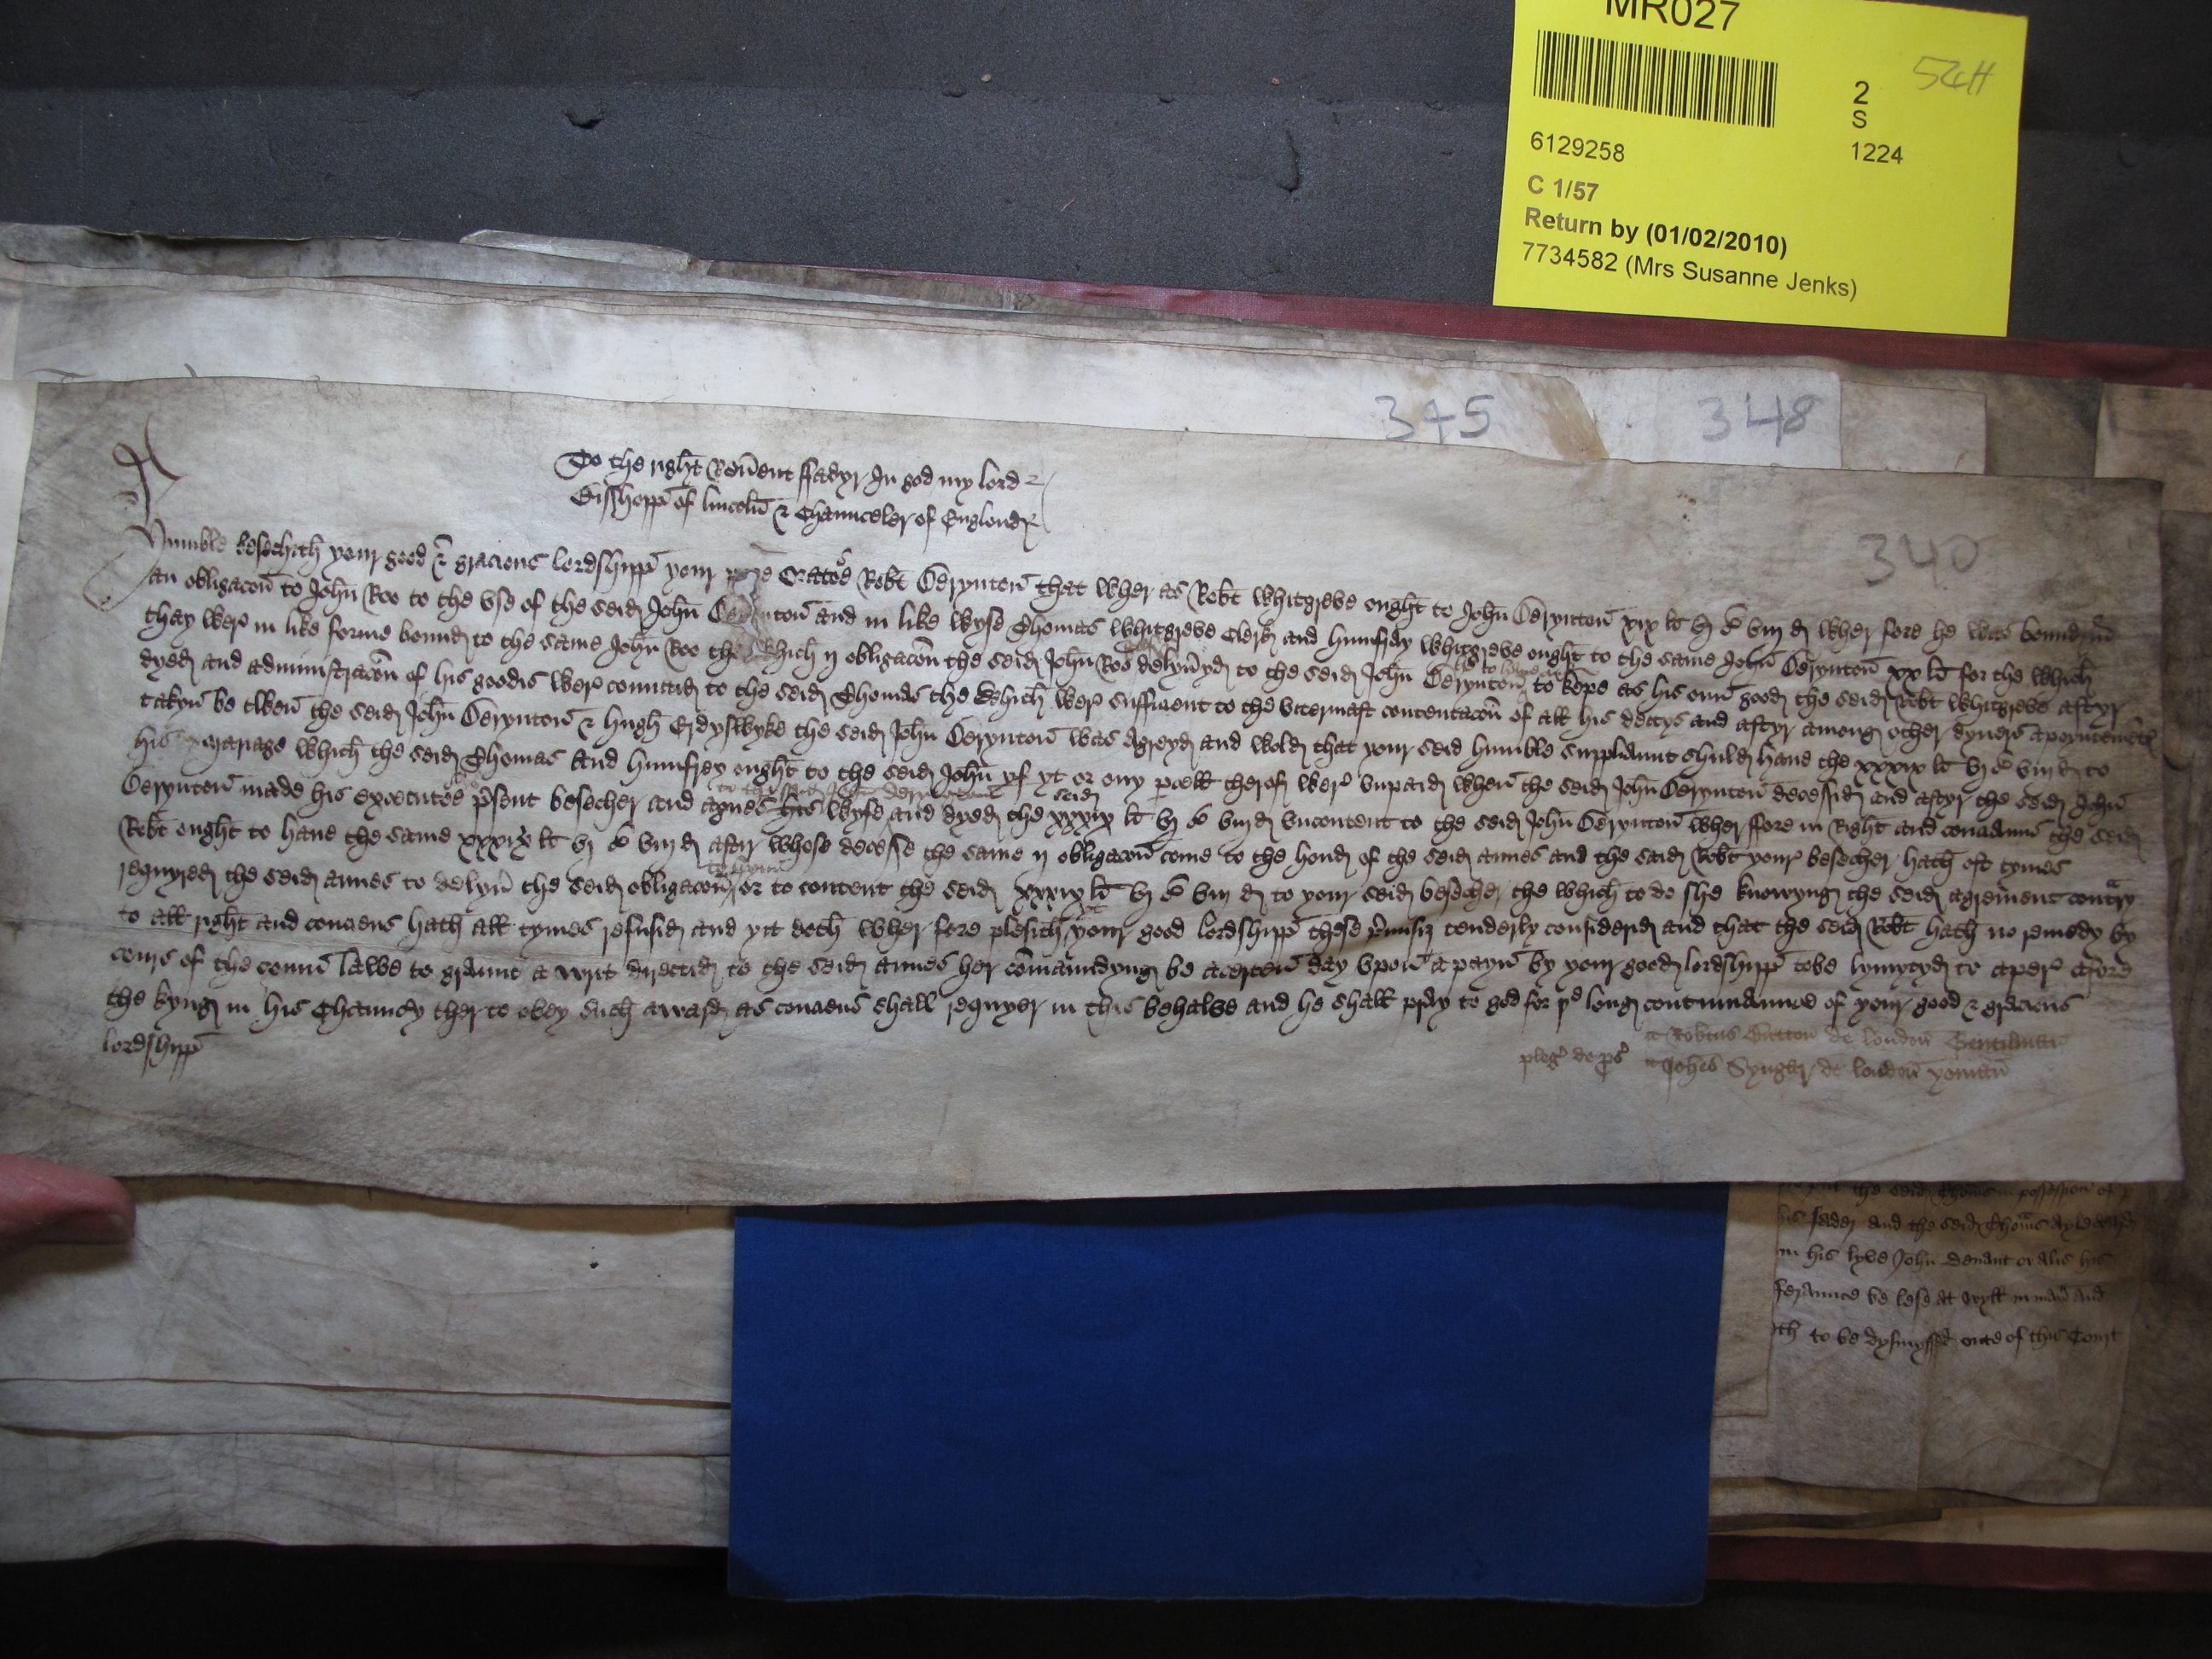 MR027
54H
2
S
6129258
1224
C 1/57
Return by (01/02/2010)
7734582 (Mrs Susanne Jenks)
345
348
340
To the right Reuerent ffadyr In god my lord
Bisshopp of lincoln & Chaunceler of Englond
Humble besechith your good & gracious lordshipp your pore Orator Robt Derynton that wher as Robt Whitgreve ought to John Derynton xix li vj s viij d wher fore he was bound in
an obligacon to John Roo to the vse of the seid John Derynton and in like wyse Thomas Whitgreve Clerk and humfrey Whitgreve ought to the same John Derynton xx li for the which
thay wer in like forme bound to the same John Roo the which ij obligacon the seid John Roo delyueryd to the seid John Derynton to kepe as his oun good the seid Robt Whitgreve aftyr
dyed and administracon of his goodis wer comittid to the seid Thomas the which wer sufficient to the vttermast contentacon of all his dettys and aftyr among other dyuers apoyntementes
takyn be twen the seid John Derynton & hugh Erdyswyke the seid John Derynton was agreyd and wold that your seid humble suppliaunt shuld haue the xxxix li vj s viij d to
his mariage which the seid Thomas and humfrey ought to the seid John yf yt or ony pcell therof wer vnpaid when the seid John Derynton decessid and aftyr the seid John
Derynton made his executors present besecher and Agnes his wyfe and dyed the seid xxxix li vj s viij d vncontent to the seid John Derynton wherffore in Right and conciens the seid
Robt ought to haue the same xxxix li vj s viij d aftyr whose decesse the same ij obligacon come to the hond of the seid annes and the said Robt your besecher hath oft tymes
requyred the seid annes to delyuer the seid obligacon or to content the seid xxxix li vj s viij d to your seid besecher the which to do she knowyng the seid agrement contrary
to all right and conciens hath all tymes refusid and yit doth wher fore plesith yt your good lordshipp these premisis tenderly considerid and that the seid Robt hath no remedy by
cours of the comun lawe to graunt a writ directid to the seid annes her comaundyng be a certen day vpon a payn by your good lordshipp to be lymytyd to aper afore
the kyng in his Chauncry ther to obey such award as conciens shall requyer in this behalve and he shall pray to god for ye long continuaunce of your good & gracious
lordshipp
pleg de ps
Robtus Sutton de london Gentilman
Johes Synger de london yoman
his fader and the seid Thomas
in his lyve John
feraunce be lese at wyll in maner and
to be dysmyssed oute of this Court